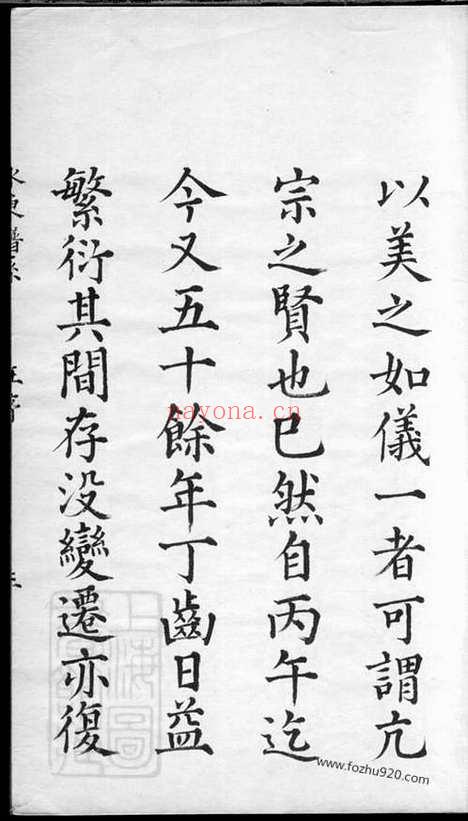 以美之如儀一者可謂亢
宗之賢也已然自丙午迄
今又五十餘年丁齒日益
繁衍其間存没變遷亦復
nayona.cn
上海圖
www.fozhu920.com